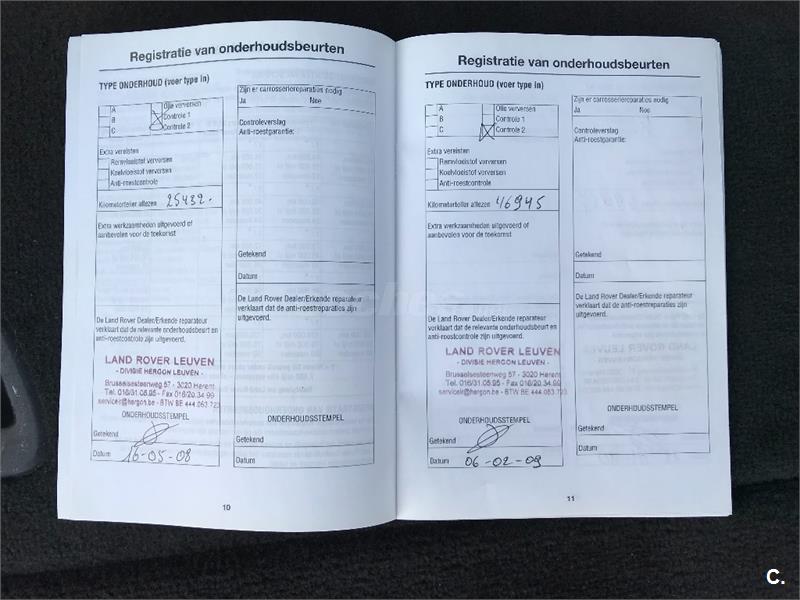 Registratie van onderhoudsbeurten
TYPE ONDERHOUD (voer type in)
A
B
C
Olie verversen
Controle 1
Controle 2
Extra vereisten
Remvloeistof verversen
Koelvloeistof verversen
Anti-roestcontrole
Kilometerteller aflezen 25432.
Extra werkzaamheden uitgevoerd of
aanbevolen voor de toekomst
De Land Rover Dealer/Erkende reparateur
verklaart dat de relevante onderhoudsbeurt en
anti-roestcontrole zijn uitgevoerd.
LAND ROVER LEUVEN
- DIVISIE HERGON LEUVEN -
Brusselsesteenweg 57 - 3020 Herent
Tel. 016/31.05.95 - Fax 016/20.34.99
ONDERHOUDSSTEMPEL
Getekend
Datum 16-05-08
Zijn er carrosseriereparaties nodig
Ja Nee
Controleverslag
Anti-roestgarantie:
Getekend
Datum
De Land Rover Dealer/Erkende reparateur
verklaart dat de anti-roestreparaties zijn
uitgevoerd.
ONDERHOUDSSTEMPEL
Getekend
Datum
10
Registratie van onderhoudsbeurten
TYPE ONDERHOUD (voer type in)
A
B
C
Olie verversen
Controle 1
Controle 2
Extra vereisten
Remvloeistof verversen
Koelvloeistof verversen
Anti-roestcontrole
Kilometerteller aflezen 46945
Extra werkzaamheden uitgevoerd of
aanbevolen voor de toekomst
De Land Rover Dealer/Erkende reparateur
verklaart dat de relevante onderhoudsbeurt en
anti-roestcontrole zijn uitgevoerd.
LAND ROVER LEUVEN
- DIVISIE HERGON LEUVEN -
Brusselsesteenweg 57 - 3020 Herent
Tel. 016/31.05.95 - Fax 016/20.34.99
ONDERHOUDSSTEMPEL
Getekend
Datum 06-02-09
Zijn er carrosseriereparaties nodig
Ja Nee
Controleverslag
Anti-roestgarantie:
Getekend
Datum
De Land Rover Dealer/Erkende reparateur
verklaart dat de anti-roestreparaties zijn
uitgevoerd.
ONDERHOUDSSTEMPEL
Getekend
Datum
11
C.